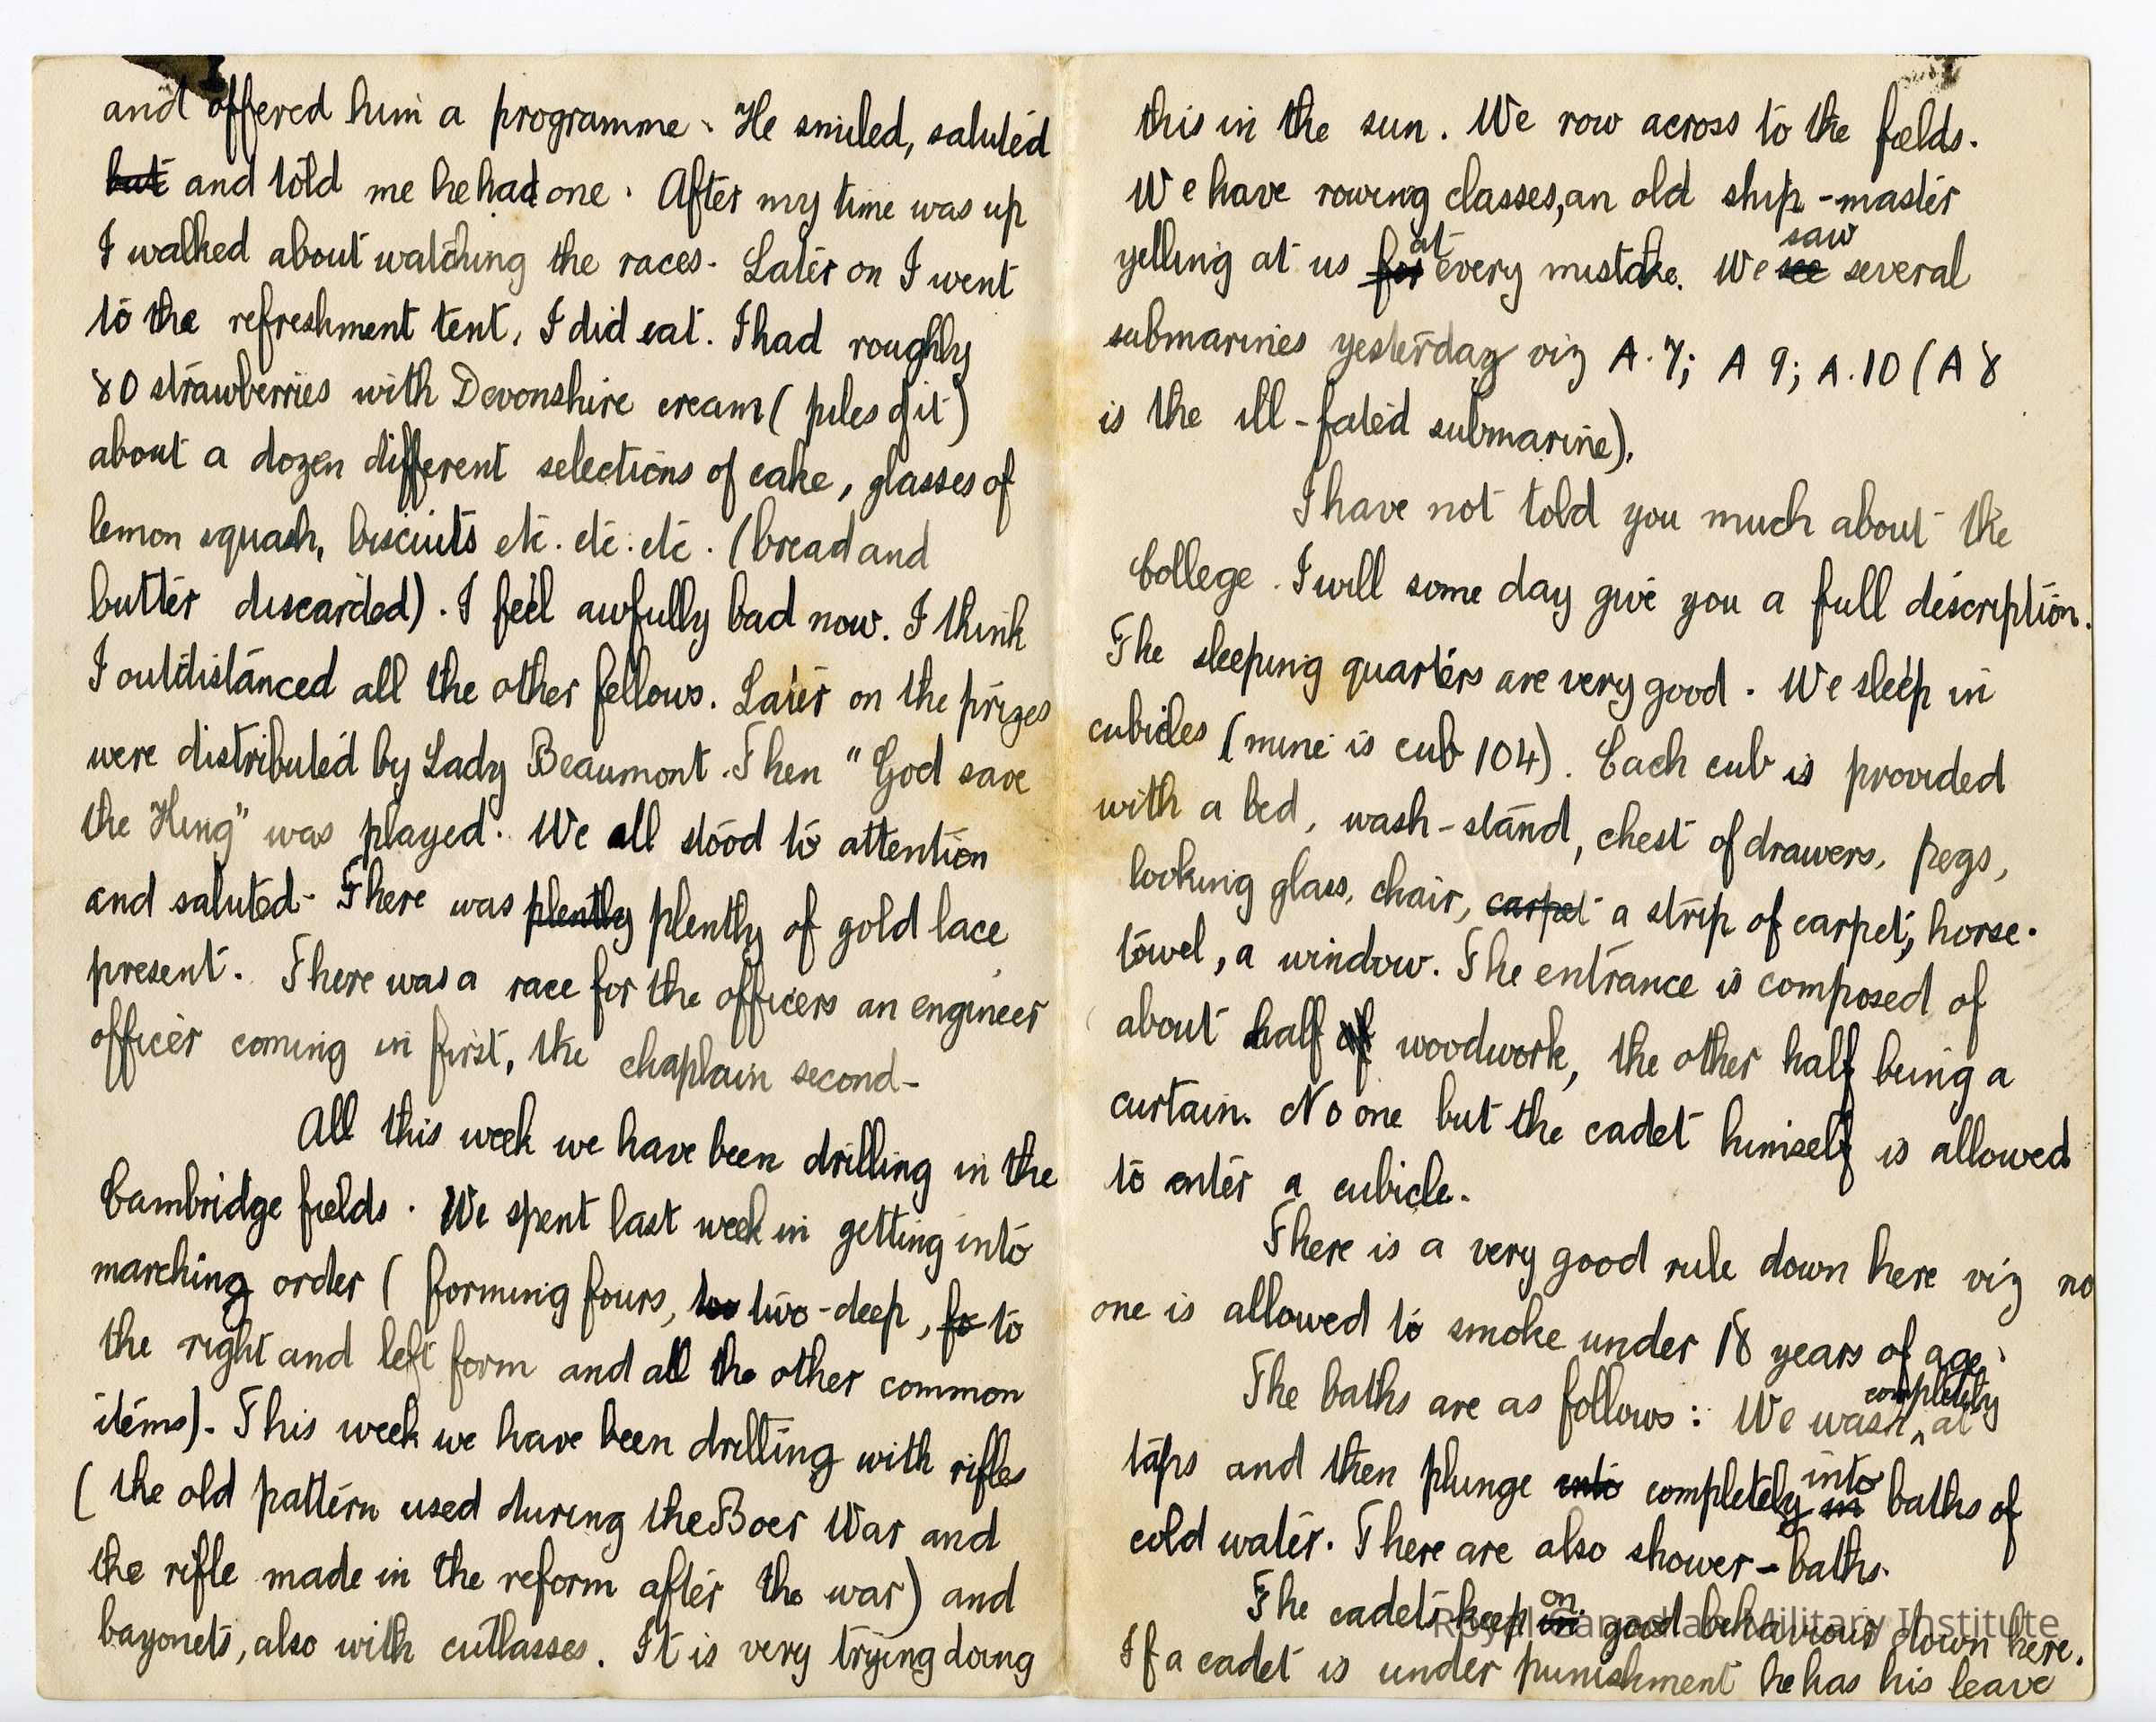 and offered him a programme. He smiled, saluted
but and told me he had one. After my time was up
I walked about watching the races. Later on I went
to the refreshment tent, I did eat. I had roughly
80 strawberries with Devonshire cream (piles of it)
about a dozen different selections of cake, glasses of
lemon squash, biscuits etc. etc. etc. (bread and
butter discarded). I feel awfully bad now. I think
I outdistanced all the other fellows. Later on the prizes
were distributed by Lady Beaumont. Then "God save
the King" was played. We all stood to attention
and saluted. There was plently plently of gold lace
present. There was a race for the officers an engineer
officer coming in first, the chaplain second-
All this week we have been drilling in the
Cambridge fields. We spent last week in getting into
marching order (forming fours, to two-deep, fo to
the right and left form and all the other common
items). This week we have been drilling with rifles
(the old pattern used during the Boer War and
the rifle made in the reform after the war) and
bayonets, also with cutlasses. It is very trying doing
this in the sun. We row across to the fields.
We have rowing classes, an old ship-master
yelling at us for at every mistake. We see saw several
submarines yesterday viz A.7; A 9; A.10 (A 8
is the ill-fated submarine).
I have not told you much about the
College. I will some day give you a full description.
The sleeping quarters are very good. We sleep in
cubicles (mine is cub 104). Each cub is provided
with a bed, wash-stand, chest of drawers, pegs,
looking glass, chair, carpet a strip of carpet, horse.
towel, a window. The entrance is composed of
about half of woodwork, the other half being a
curtain. No one but the cadet himself is allowed
to enter a cubicle.
There is a very good rule down here viz no
one is allowed to smoke under 18 years of age.
The baths are as follows: We wash completely at
taps and then plunge into completely in into baths of
cold water. There are also shower-baths.
The cadets keep in on good behaviour down here.
If a cadet is under punishment he has his leave
Royal Canadian Military Institute